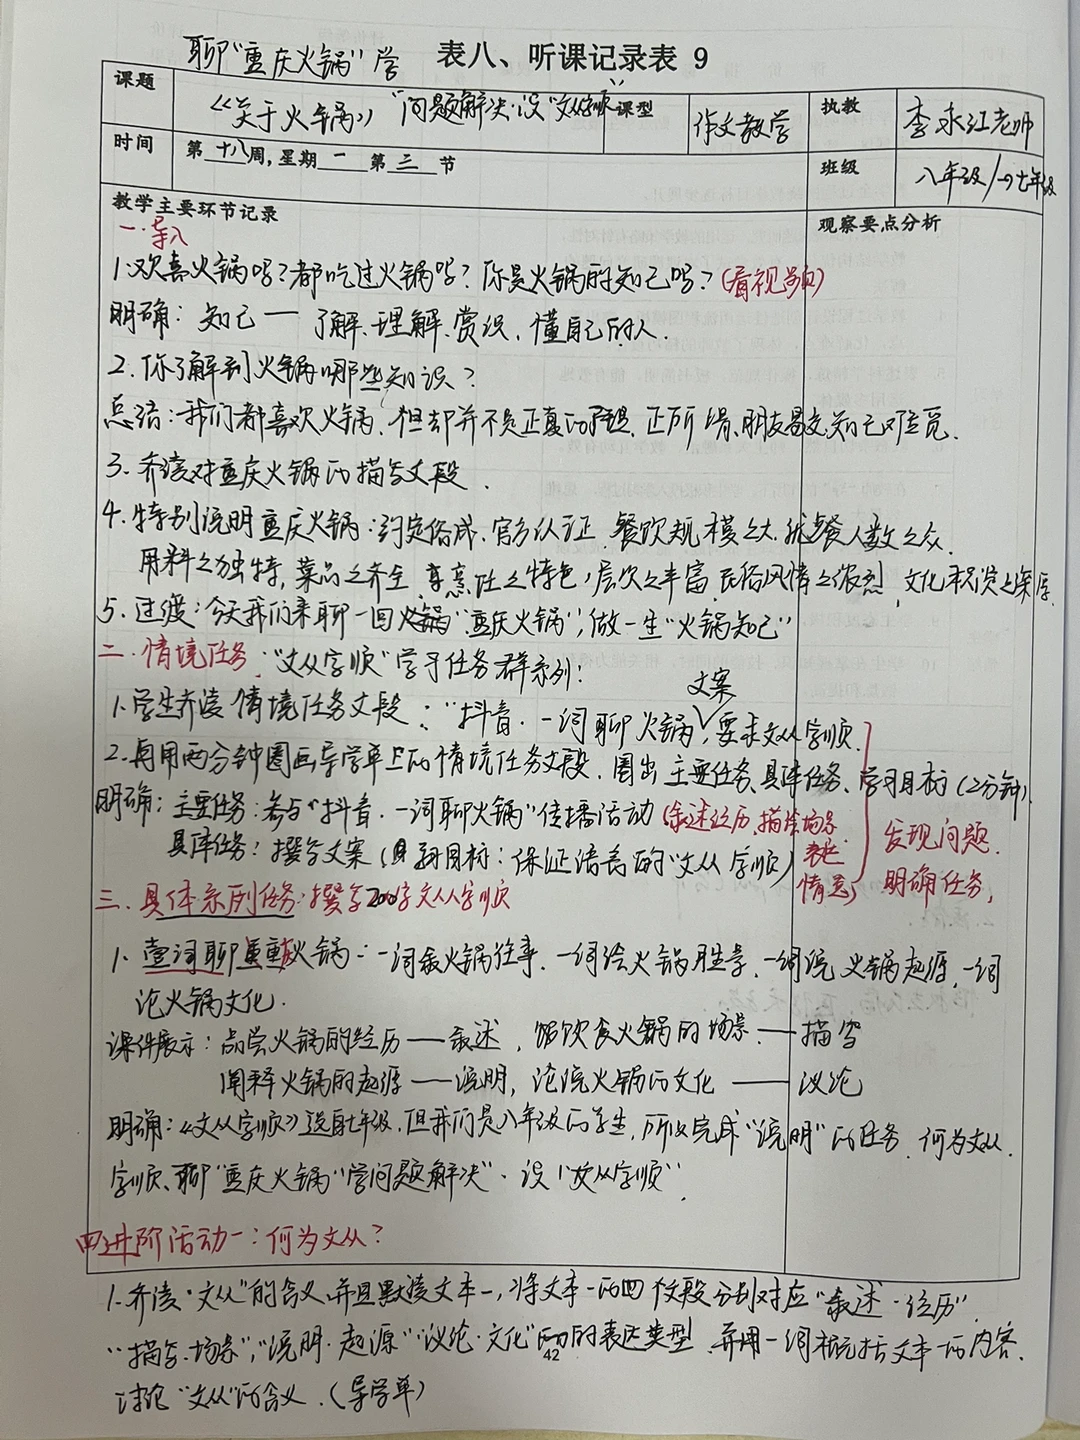 聊"重庆火锅"学 表八、听课记录表 9
课题 《关于火锅》 "问题解决·设"文从字顺" 课型 作文教学 执教 李永红老师
时间 第十八周，星期一 第三节 班级 八年级/→七年级
教学主要环节记录 观察要点分析
一.导入
1.欢喜火锅吗？都吃过火锅吗？你是火锅的知己吗？（看视频）
明确：知己——了解、理解、赏识、懂自己的人.
2.你了解到火锅哪些知识？
总结：我们都喜欢火锅、但却并不是正真的了解，正所谓、朋友易交，知己难觅.
3.齐读对重庆火锅的描写文段.
4.特别说明重庆火锅：约定俗成、官方认证、餐饮规模之大.就餐人数之众.
用料之独特，菜品之齐全，享烹饪之特色，层次之丰富，民俗风情之浓烈，文化积淀之深厚.
5.过渡：今天我们来聊一回"重庆火锅"，做一生"火锅知己"
二.情境任务："文从字顺"学习任务群系列：
文案
1.学生齐读情境任务文段："抖音.一词聊火锅，要求文从字顺.
2.再用两分钟圈画导学单上的情境任务文段、圈出主要任务、具体任务、学习目标（2分钟）.
明确：主要任务：参与"抖音.一词聊火锅"传播活动（叙述经历、描绘场景.
具体任务：撰写文案（目标：保证语言的"文从字顺）表达
情意） 发现问题.
明确任务，
三.具体系列任务：撰写200字文从字顺
1.壹词聊重庆火锅：一词叙火锅往事、一词绘火锅胜景、一词说火锅起源、一词
论火锅文化.
课件展示：品尝火锅的经历——叙述，饮食火锅的场景.——描写
阐释火锅的起源——说明，论说火锅的文化——议论
明确：《文从字顺》选自七年级，但我们是八年级的学生，所以完成"说明"的任务.何为文从
字顺、聊"重庆火锅"学问题解决"、设"文从字顺".
四.进阶活动一：何为文从？
1.齐读"文从"的含义、并且默读文本一，将文本一的四个文段分别对应"叙述.经历"
"描写.场景"，"说明.起源""议论.文化"的表达类型.并用一词概括文本一的内容.
讨论"文从"的含义.（导学单）
42